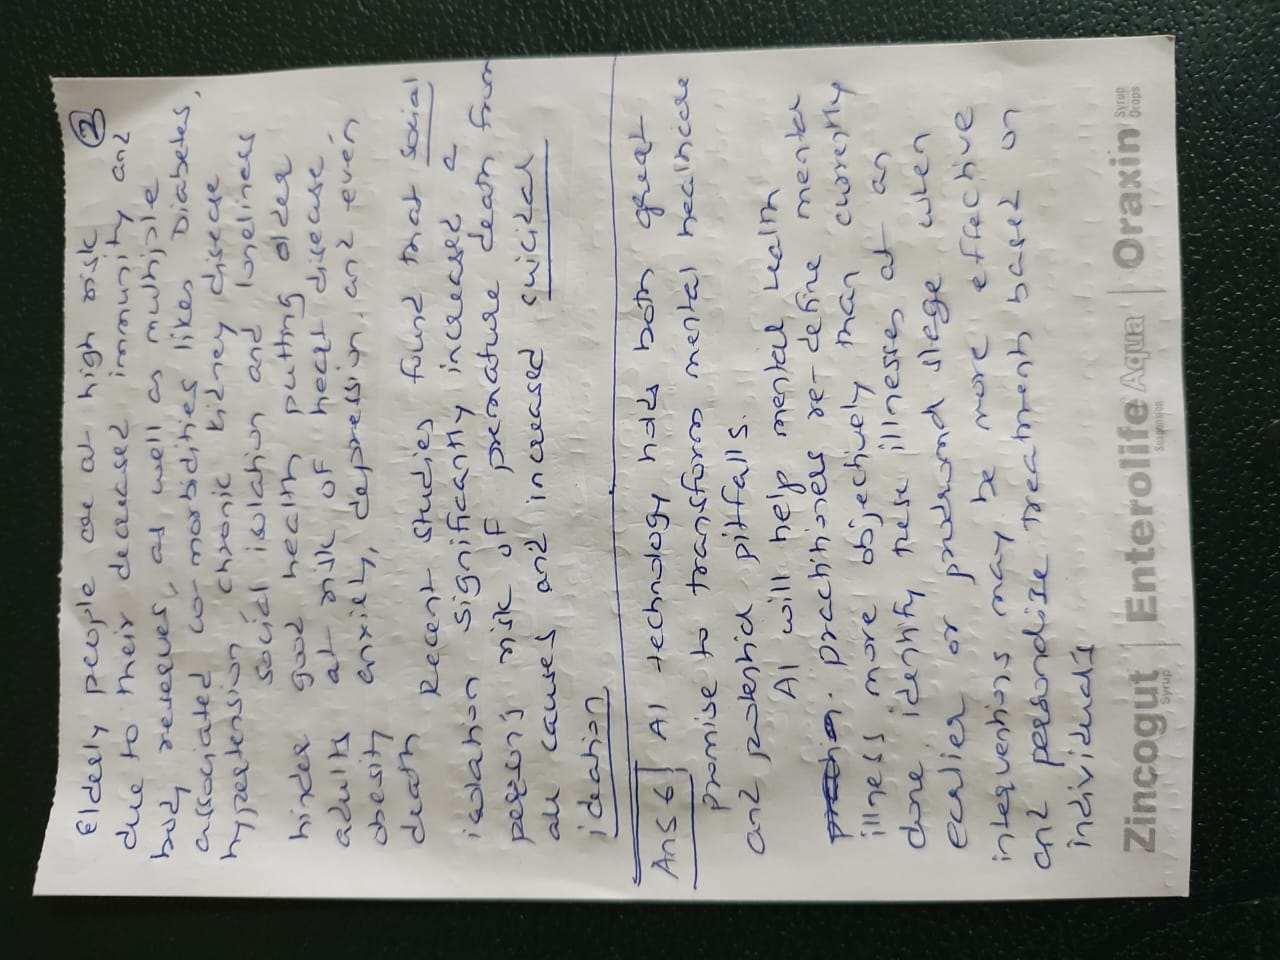 ②
Elderly people are at high risk
due to their decreased immunity and
body reserves, as well as multiple
associated co-morbidities likes Diabetes,
hypertension chronic kidney disease
social isolation and loneliness
hinder good health putting older
adults at risk of heart disease
obesity anxiety, depression. and even
death
Recent studies found that social
isolation significantly increased a
person's risk of premature death from
all causes and increased suicidal
ideation
Ans 6] AI technology holds both great
promise to transform mental healthcare
and potential pitfalls.
AI will help mental health
practitioners re-define mental
illness more objectively than currently
done identify these illnesses at an
earlier or prodromal stage when
interventions may be more effective
and personalise treatments based on
individual's
Zincogut Syrup | Enterolife Aqua Suspension | Oraxin Syrup Drops